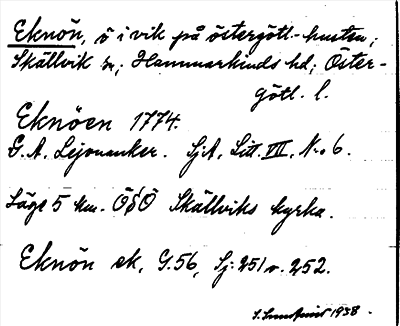 Eknön, ö i vik på östergötl.-kusten;
Skällvik sn; Hammarkinds hd; Öster-
götl. l.
Eknöen 1774.
G. A. Lejonanker. SjA, Litt. VIII, No 6.
Läge 5 km. ÖSÖ Skällviks kyrka.
Eknön ek, G. 56, Sj: 251 v. 252.
1938.